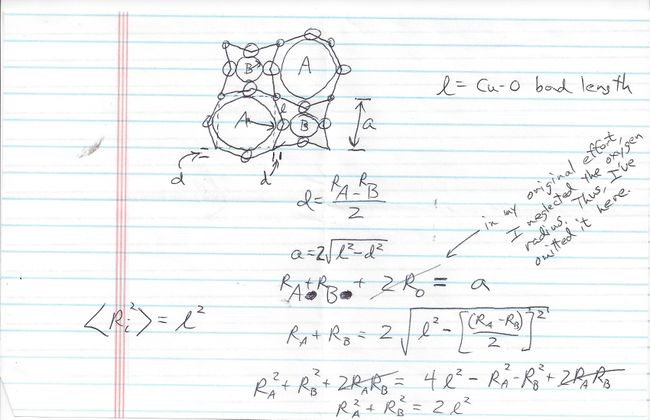 B
A
l = Cu-O bond length
A
l
B
a
d
d
d = R_A - R_B / 2
in my original effort,
I neglected the oxygen
radius. Thus, I've
omitted it here.
a = 2√(l² - d²)
R_A + R_B + 2R_O = a
<R_i²> = l²
R_A + R_B = 2√(l² - [(R_A - R_B)/2]²)
R_A² + R_B² + 2R_AR_B = 4l² - R_A² - R_B² + 2R_AR_B
R_A² + R_B² = 2l²